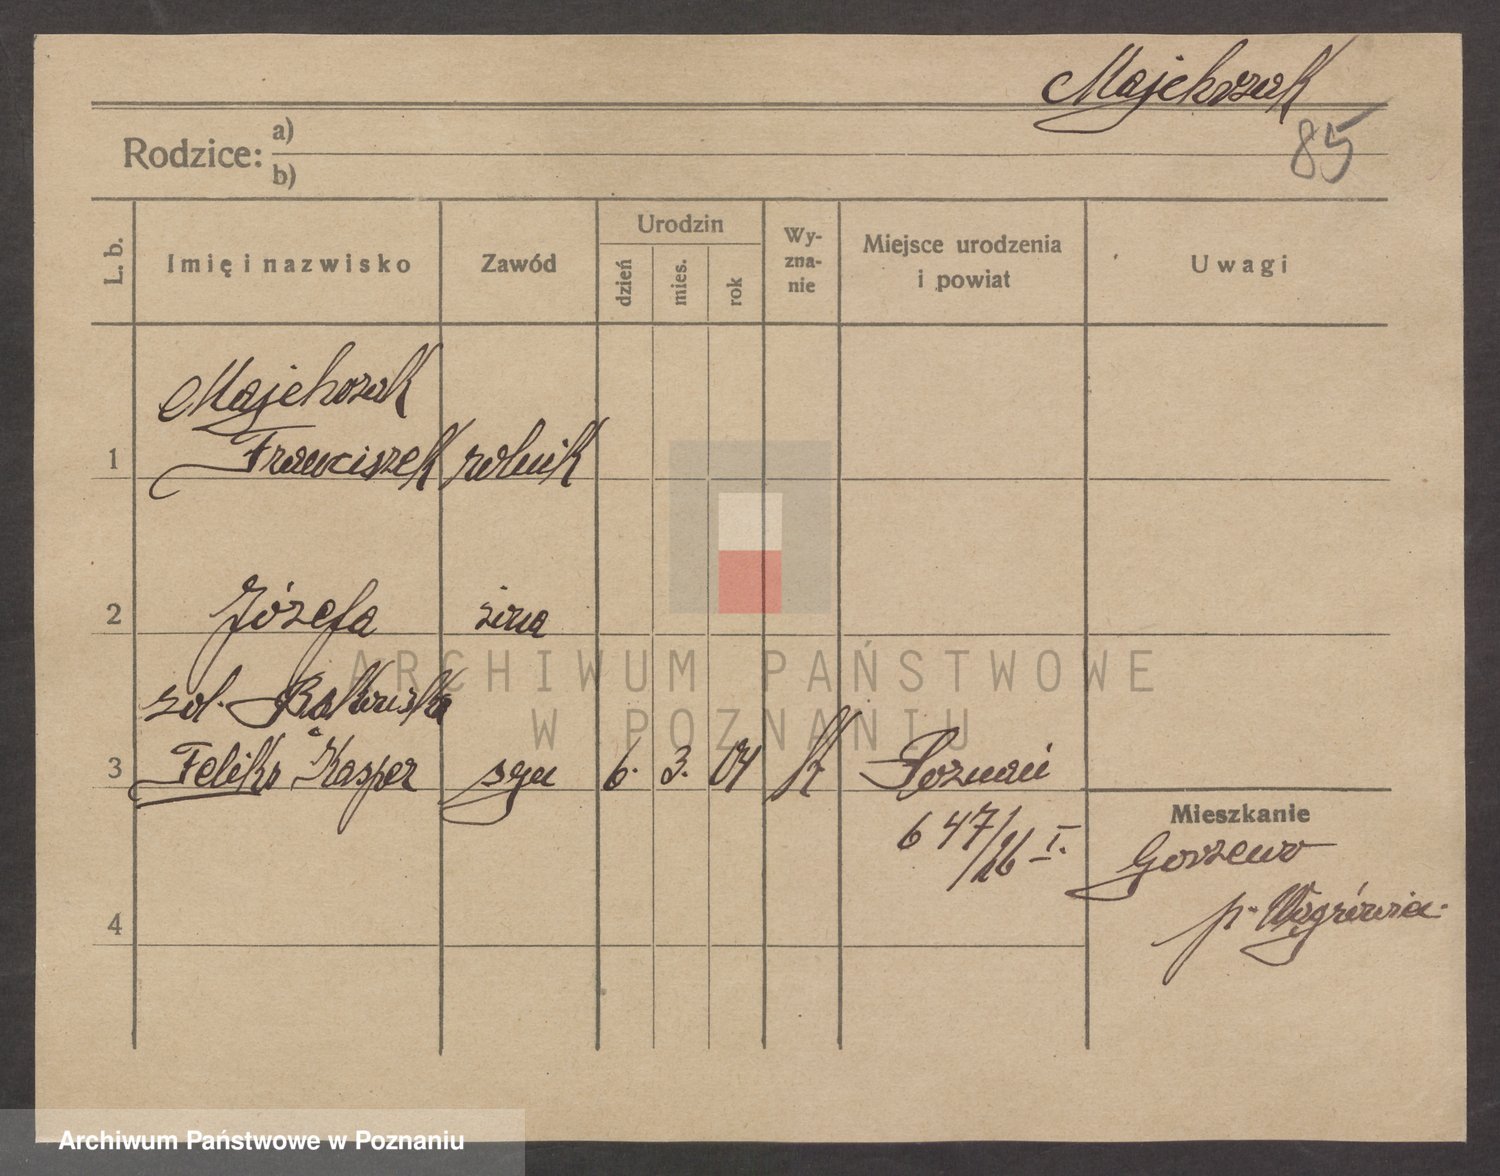 Majchrzak
85
Rodzice:
a)
b)
L. b.
Imię i nazwisko
Zawód
Urodzin
dzień
mies.
rok
Wy-
zna-
nie
Miejsce urodzenia
i powiat
Uwagi
Majchrzak
1 Franciszek rolnik
2 Józefa żona
zol.
3 Feliks Kasper syn 6. 3. 04 k Poznań
Mieszkanie
6 47/26 I.
Gorzewo
p. Wągrówiec
4
ARCHIWUM PAŃSTWOWE
W POZNANIU
Archiwum Państwowe w Poznaniu